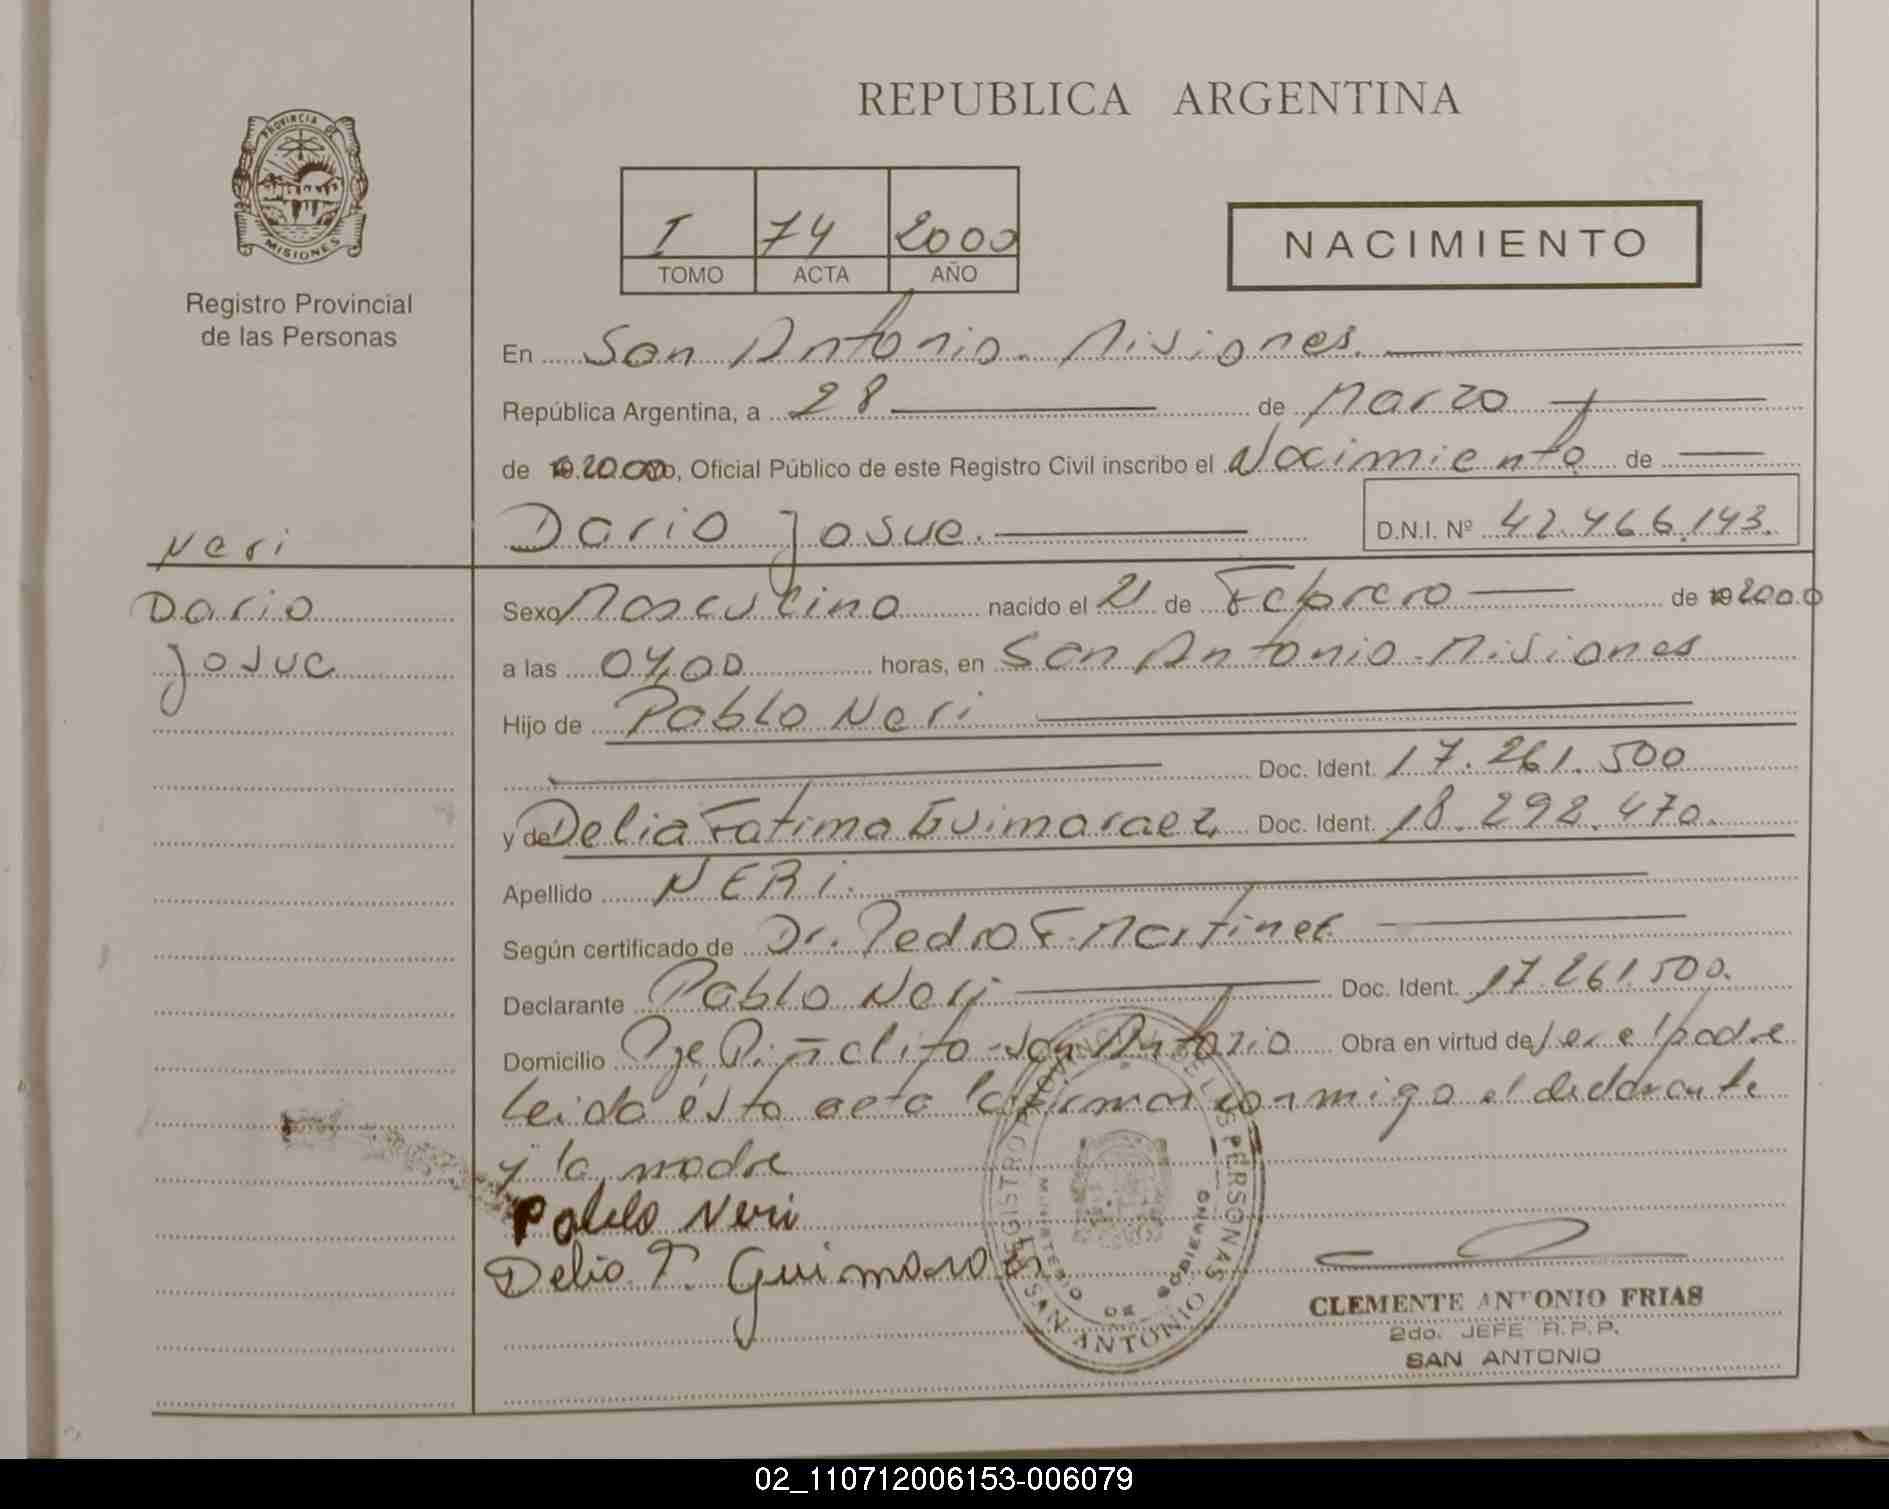 REPUBLICA ARGENTINA
PROVINCIA DE
MISIONES
Registro Provincial
de las Personas
I 74 2000
TOMO ACTA AÑO
NACIMIENTO
En San Antonio. Misiones.
República Argentina, a 28 de Marzo
de 2000, Oficial Público de este Registro Civil inscribo el Nacimiento de
Dario Josue. D.N.I. Nº 42.466.143.
Neri
Dario
Josue
Sexo Masculino nacido el 21 de Febrero de 2000
a las 04,00 horas, en San Antonio - Misiones
Hijo de Pablo Neri
Doc. Ident. 17.261.500
y de Delia Fatima Guimaraez Doc. Ident. 18.292.470.
Apellido NERi.
Según certificado de Dr. Pedro F. Martinez
Declarante Pablo Neri Doc. Ident. 17.261.500.
Domicilio Pje. Piñalito - San Antonio Obra en virtud de ser el padre
Leida ésta acta la firman conmigo el declarante
y la madre
Pablo Neri
Delia F. Guimaraez
REGISTRO PROVINCIAL DE LAS PERSONAS
MINISTERIO DE GOBIERNO
SAN ANTONIO
CLEMENTE ANTONIO FRIAS
2do. JEFE R.P.P.
SAN ANTONIO
02_110712006153-006079